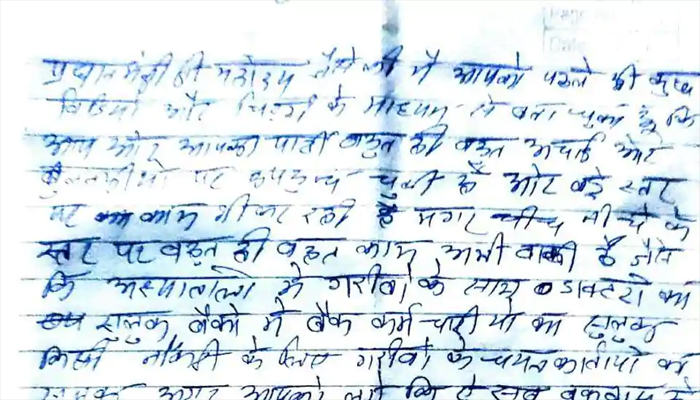 प्रधान मंत्री जी महोदय वैसे तो मै आपको पहले भी कुछ
और चिट्ठी के माध्यम से बता चुका हूं कि
आप और आपकी पार्टी बहुत ही बहुत अच्छे और
पर पहुंच चुकी है और बड़े स्तर
पर काम भी कर रही है मगर नीचे के
स्तर पर बहुत ही बहुत काम अभी बाकी है जैसे
कि अस्पतालो मे गरीबो के साथ डाक्टरो का
सुलुक बैंको मे बैंक कर्मचारीयो का सुलुक
किसी नौकरी के लिए गरीबो के चयन का
अगर आपको लगे कि ये सब बकवास है